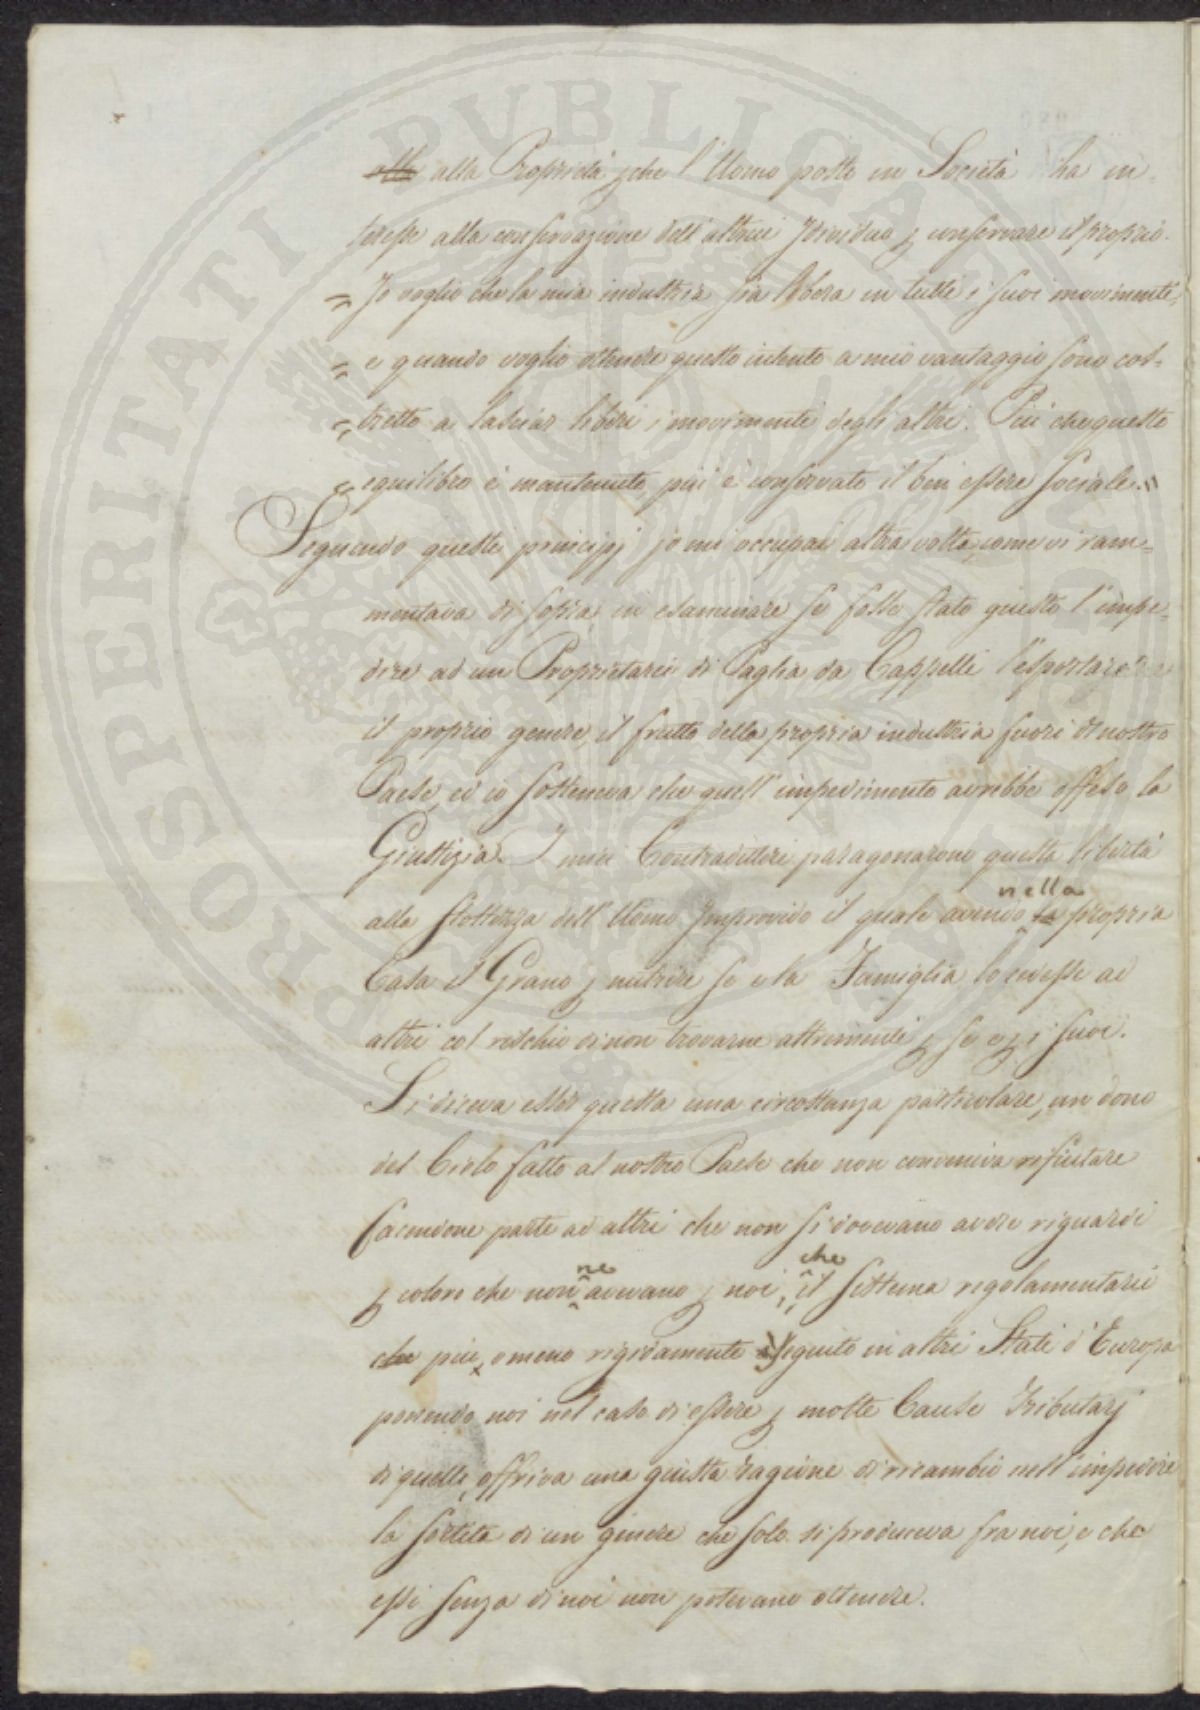 alla alla Proprietà, che l'Uomo posto in Società ha in-
teresse alla conservazione dell'altrui Individuo p conservare il proprio.
= Io voglio che la mia industria sia libera in tutti i suoi movimenti,
= e quando voglio ottenere questo intento a mio vantaggio sono cos-
= tretto a lasciar liberi i movimenti degli altri. Più che questo
= equilibro è mantenuto, più è conservato il ben essere sociale."
Seguendo questi principj io mi occupai altra volta, come vi ram-
mentava di sopra, in esaminare se fosse stato giusto l'impe-
dire ad un Proprietario di Paglia da Cappelli l'esportare
il proprio genere, il frutto della propria industria fuori di nostro
Paese, ed io sosteneva che quell'impedimento avrebbe offeso la
Giustizia. I miei Contradittori paragonarono questa libertà
nella
alla stoltezza dell'Uomo Improvido il quale avendo la propria
Casa il Grano p nutrire se e la Famiglia lo cedesse ad
altri col rischio di non trovarne altrimenti p se e p i suoi.
Si diceva esser questa una circostanza particolare, un dono
del Cielo fatto al nostro Paese che non conveniva rifiutare
facendone parte ad altri che non si dovevano avere riguardi
ne che
p coloro che non avevano p noi, il sistema regolamentario
che più, o meno rigidamente seguito in altri Stati d'Europa
ponendo noi nel caso di essere p molte Cause Tributarj
di quelli, offriva una giusta ragione di ricambio nell'impedire
la sortita di un genere che solo si produceva fra noi, e che
essi senza di noi non potevano ottenere.
PROSPERITATI PUBLICAE